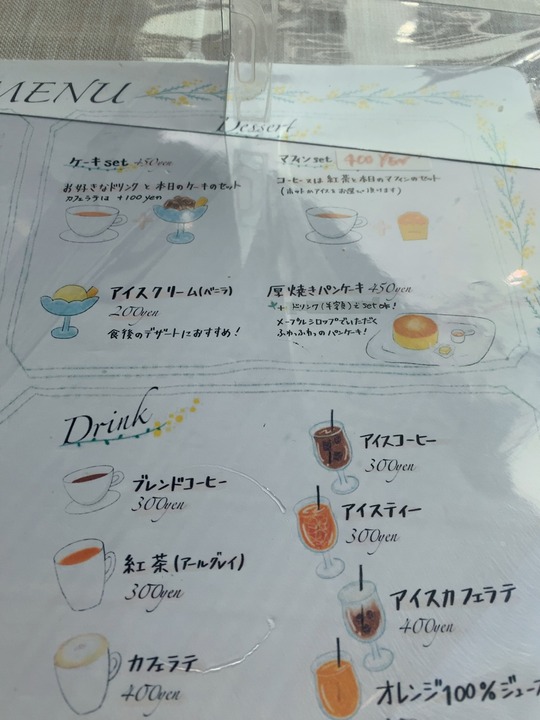 MENU
Dessert
ケーキset 450yen
お好きなドリンクと本日のケーキのセット
カフェラテは +100yen
マフィンset 400yen
コーヒー又は紅茶と本日のマフィンのセット
(ホットかアイスとお選び頂けます)
アイスクリーム(バニラ)
200yen
食後のデザートにおすすめ!
厚焼きパンケーキ 450yen
ドリンク(半額)とset ok!
メープルシロップでいただく
ふわっふわっのパンケーキ!
Drink
ブレンドコーヒー
300yen
紅茶(アールグレイ)
300yen
カフェラテ
400yen
アイスコーヒー
300yen
アイスティー
300yen
アイスカフェラテ
400yen
オレンジ100%ジュー